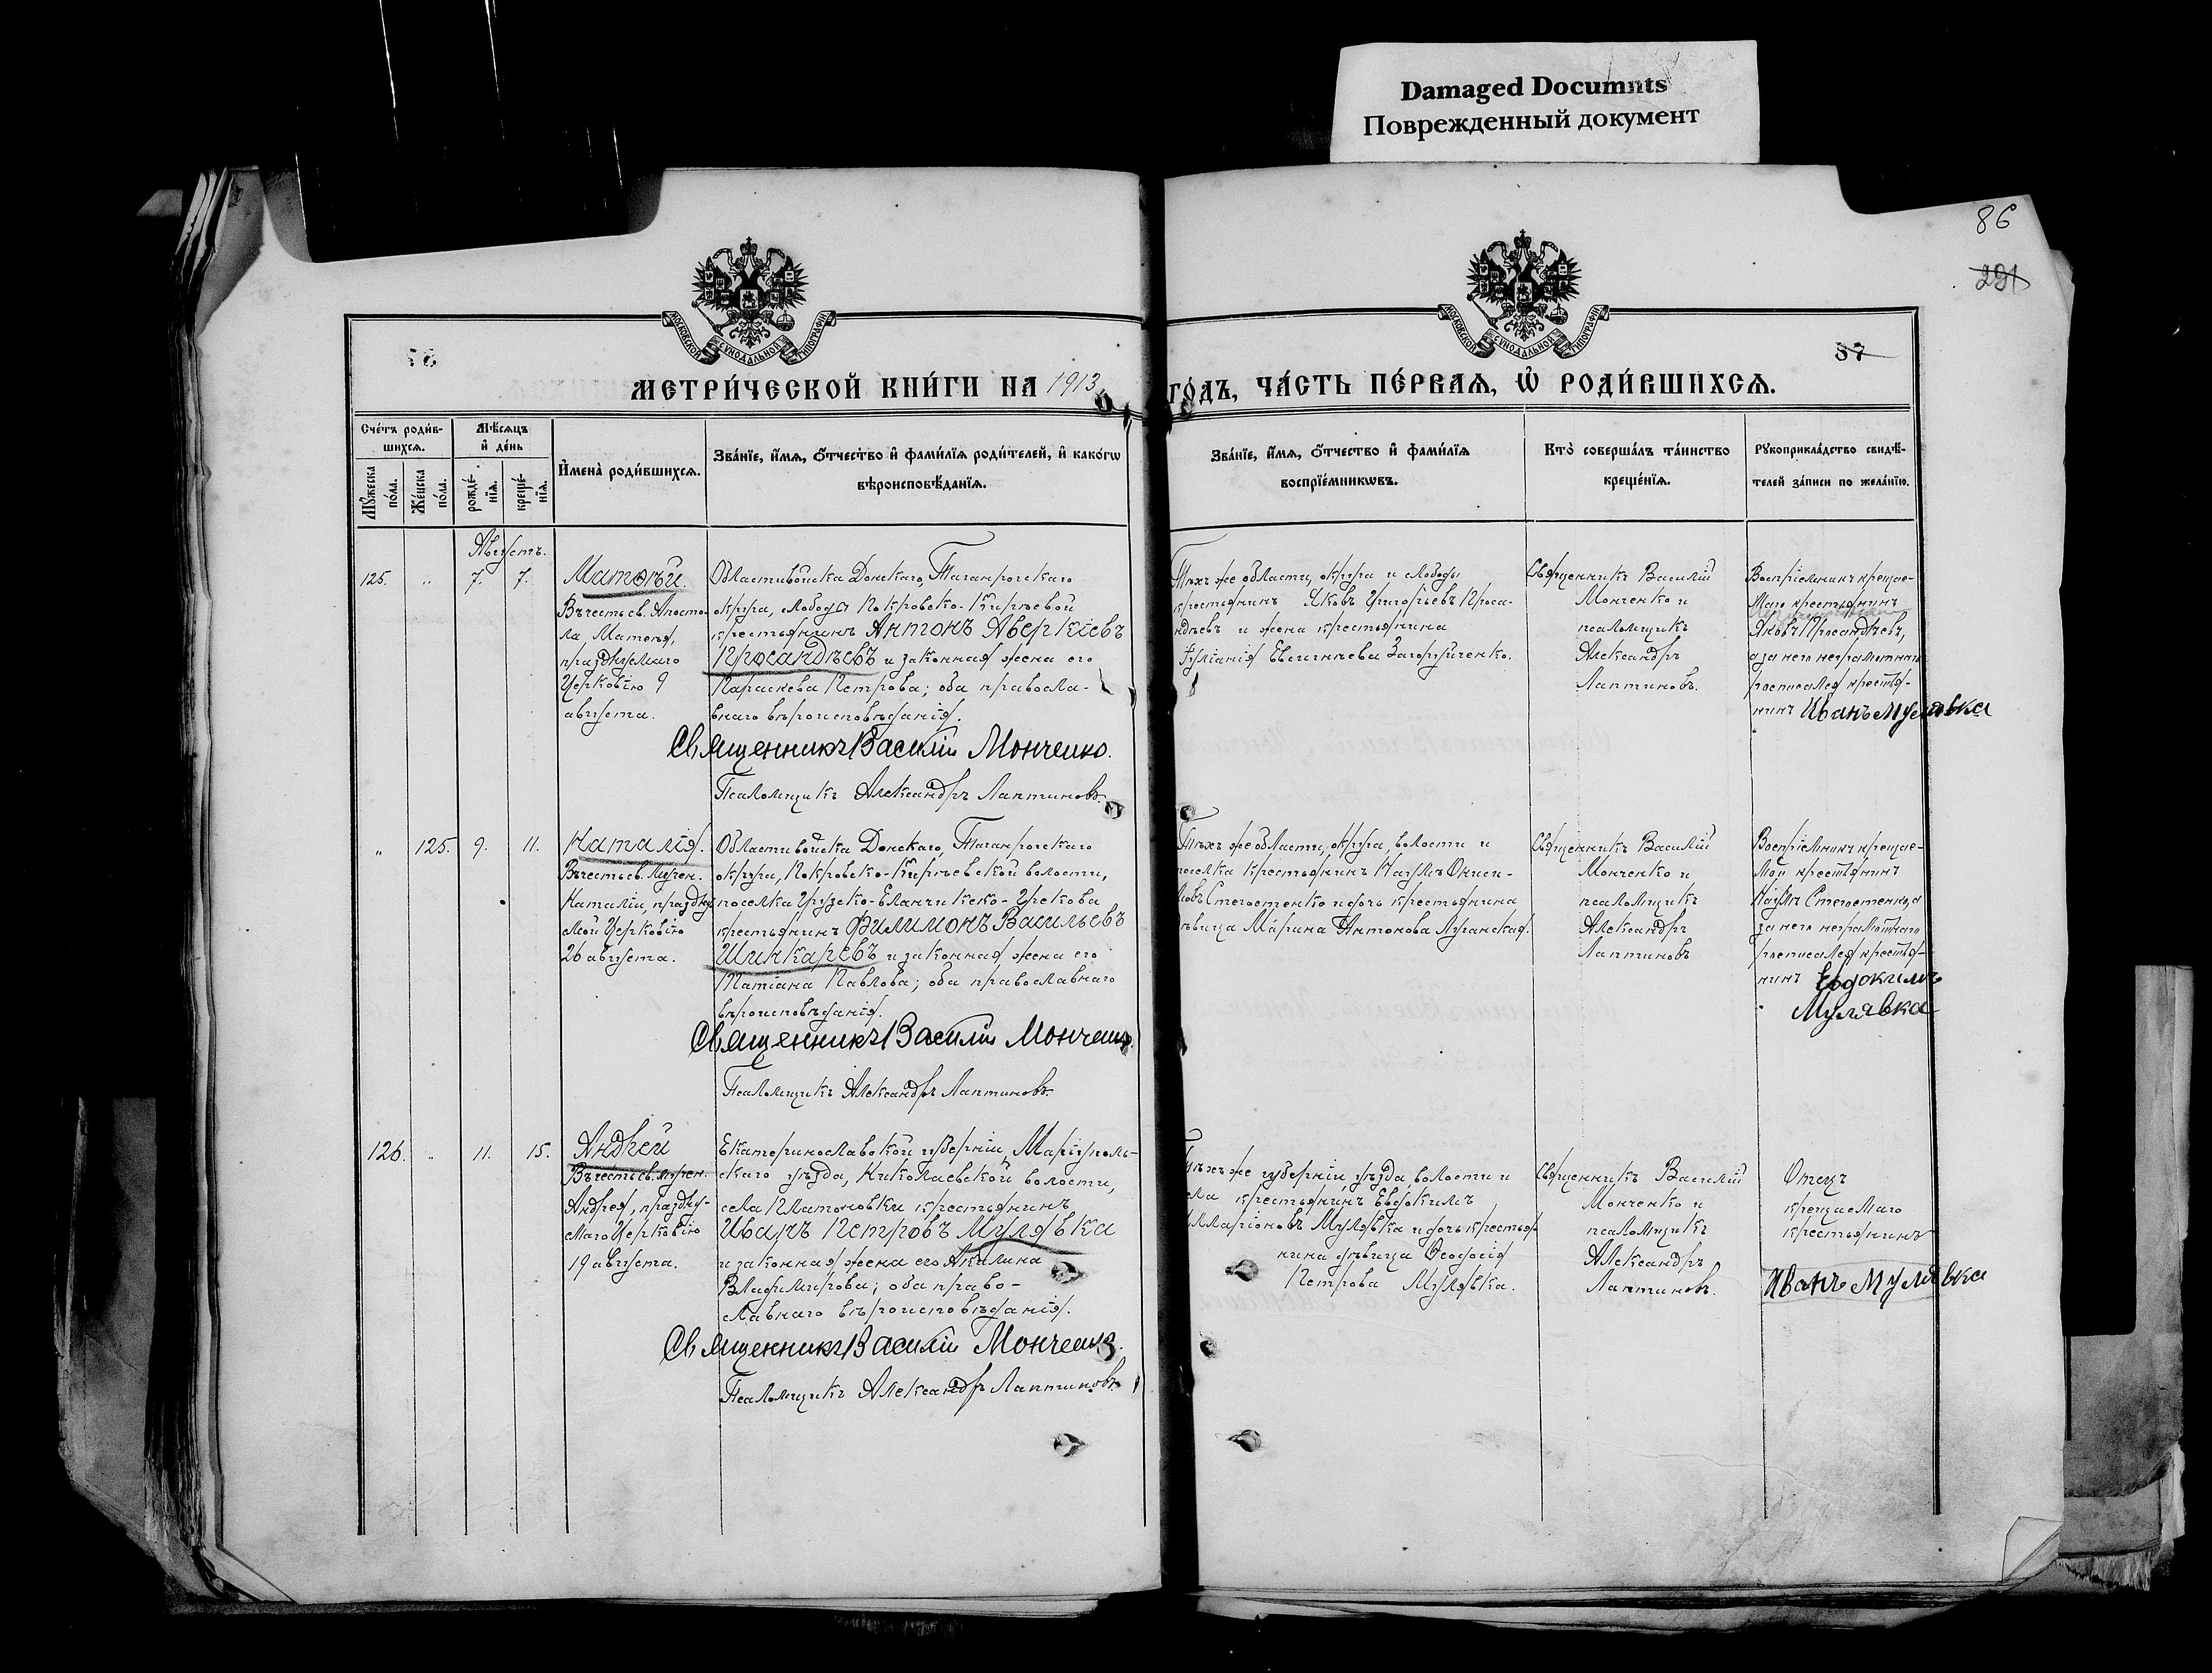 Damaged Documnts
Поврежденный документ
86
291
87
МОСКОВСКОЙ СѴНОДАЛЬНОЙ ТИПОГРАФІИ
МОСКОВСКОЙ СѴНОДАЛЬНОЙ ТИПОГРАФІИ
МЕТРИ́ЧЕСКОЙ КНИ́ГИ НА 1913
ГО́ДЪ, ЧА́СТЬ ПЕ́РВАѦ, Ѡ҆ РОДИ́ВШИХСѦ.
Сче́тъ роди́в-
шихсѧ.
Мꙋ́жеска по́ла.
Же́нска по́ла.
Мѣ́сѧцъ
и҆ де́нь
рожде́-
нїѧ.
креще́-
нїѧ.
И҆мена̀ роди́вшихсѧ.
Зва́нїе, и҆́мѧ, ѻ҆́тчество и҆ фами́лїѧ роди́телей, и҆ како́гѡ
вѣроисповѣ́данїѧ.
Зва́нїе, и҆́мѧ, ѻ҆́тчество и҆ фами́лїѧ
воспрїе́мникѡвъ.
Кто̀ соверша́лъ та́инство
креще́нїѧ.
Рꙋкоприкла́дство свидѣ́-
телей за́писи по жела́нїю.
Августъ.
125.
"
7.
7.
Матѳѣй.
Въ честь св. Апосто-
ла Матѳея,
празднуемаго
Церковію 9
августа.
Области войска Донскаго, Таганрогскаго
округа, слободы Покровско-Кирѣевой
крестьянинъ Антонъ Аверкіевъ
Просандѣевъ и законная жена его
Параскева Петрова; оба правосла-
внаго вѣроисповѣданія.
Священникъ Василій Монченко.
Псаломщикъ Александръ Лаптиновъ.
Тѣхъ же области, округа и слободы
крестьянинъ Яковъ Григорьевъ Проса-
ндѣевъ и жена крестьянина
Іуліанія Евгеніева Загоруйченко.
Священникъ Василій
Монченко и
псаломщикъ
Александръ
Лаптиновъ.
Воспріемникъ крещае-
маго крестьянинъ
Яковъ Просандѣевъ,
а за него неграмотнаго
росписался крестья-
нинъ Иванъ Мулявка
"
125.
9.
11.
Наталія.
Въ честь св. Мучен.
Наталіи, праздну-
емой Церковію
26 августа.
Области войска Донскаго, Таганрогскаго
округа, Покровско-Кирѣевской волости,
поселка Грузско-Еланчикско-Грекова
крестьянинъ Филимонъ Васильевъ
Шинкаревъ и законная жена его
Татіана Павлова; оба православнаго
вѣроисповѣданія.
Священникъ Василій Монченко.
Псаломщикъ Александръ Лаптиновъ.
Тѣхъ же области, округа, волости и
поселка крестьянинъ Наумъ Ониси-
мовъ Стегостенко и дочь крестьянина
дѣвица Марина Антонова Луганская.
Священникъ Василій
Монченко и
псаломщикъ
Александръ
Лаптиновъ
Воспріемникъ крещае-
мой крестьянинъ
Наумъ Стегостенко, а
за него неграмотнаго
росписался крестья-
нинъ Евдокимъ
Мулявка
126.
"
11.
15.
Андрей
Въ честь св. мучен.
Андрея, праздну-
емаго Церковію
19 августа.
Екатеринославской губерніи, Маріуполь-
скаго уѣзда, Николаевской волости,
села Платоновки крестьянинъ
Иванъ Петровъ Мулявка
и законная жена его Акилина
Владимирова; оба право-
славнаго вѣроисповѣданія.
Священникъ Василій Монченко.
Псаломщикъ Александръ Лаптиновъ
Тѣхъ же губерніи уѣзда, волости и
села крестьянинъ Евдокимъ
Илларіоновъ Мулявка и дочь крестья-
нина дѣвица Ѳеодосія
Петрова Мулявка.
Священникъ Василій
Монченко и
псаломщикъ
Александръ
Лаптиновъ.
Отецъ
крещаемаго
крестьянинъ
Иванъ Мулявка